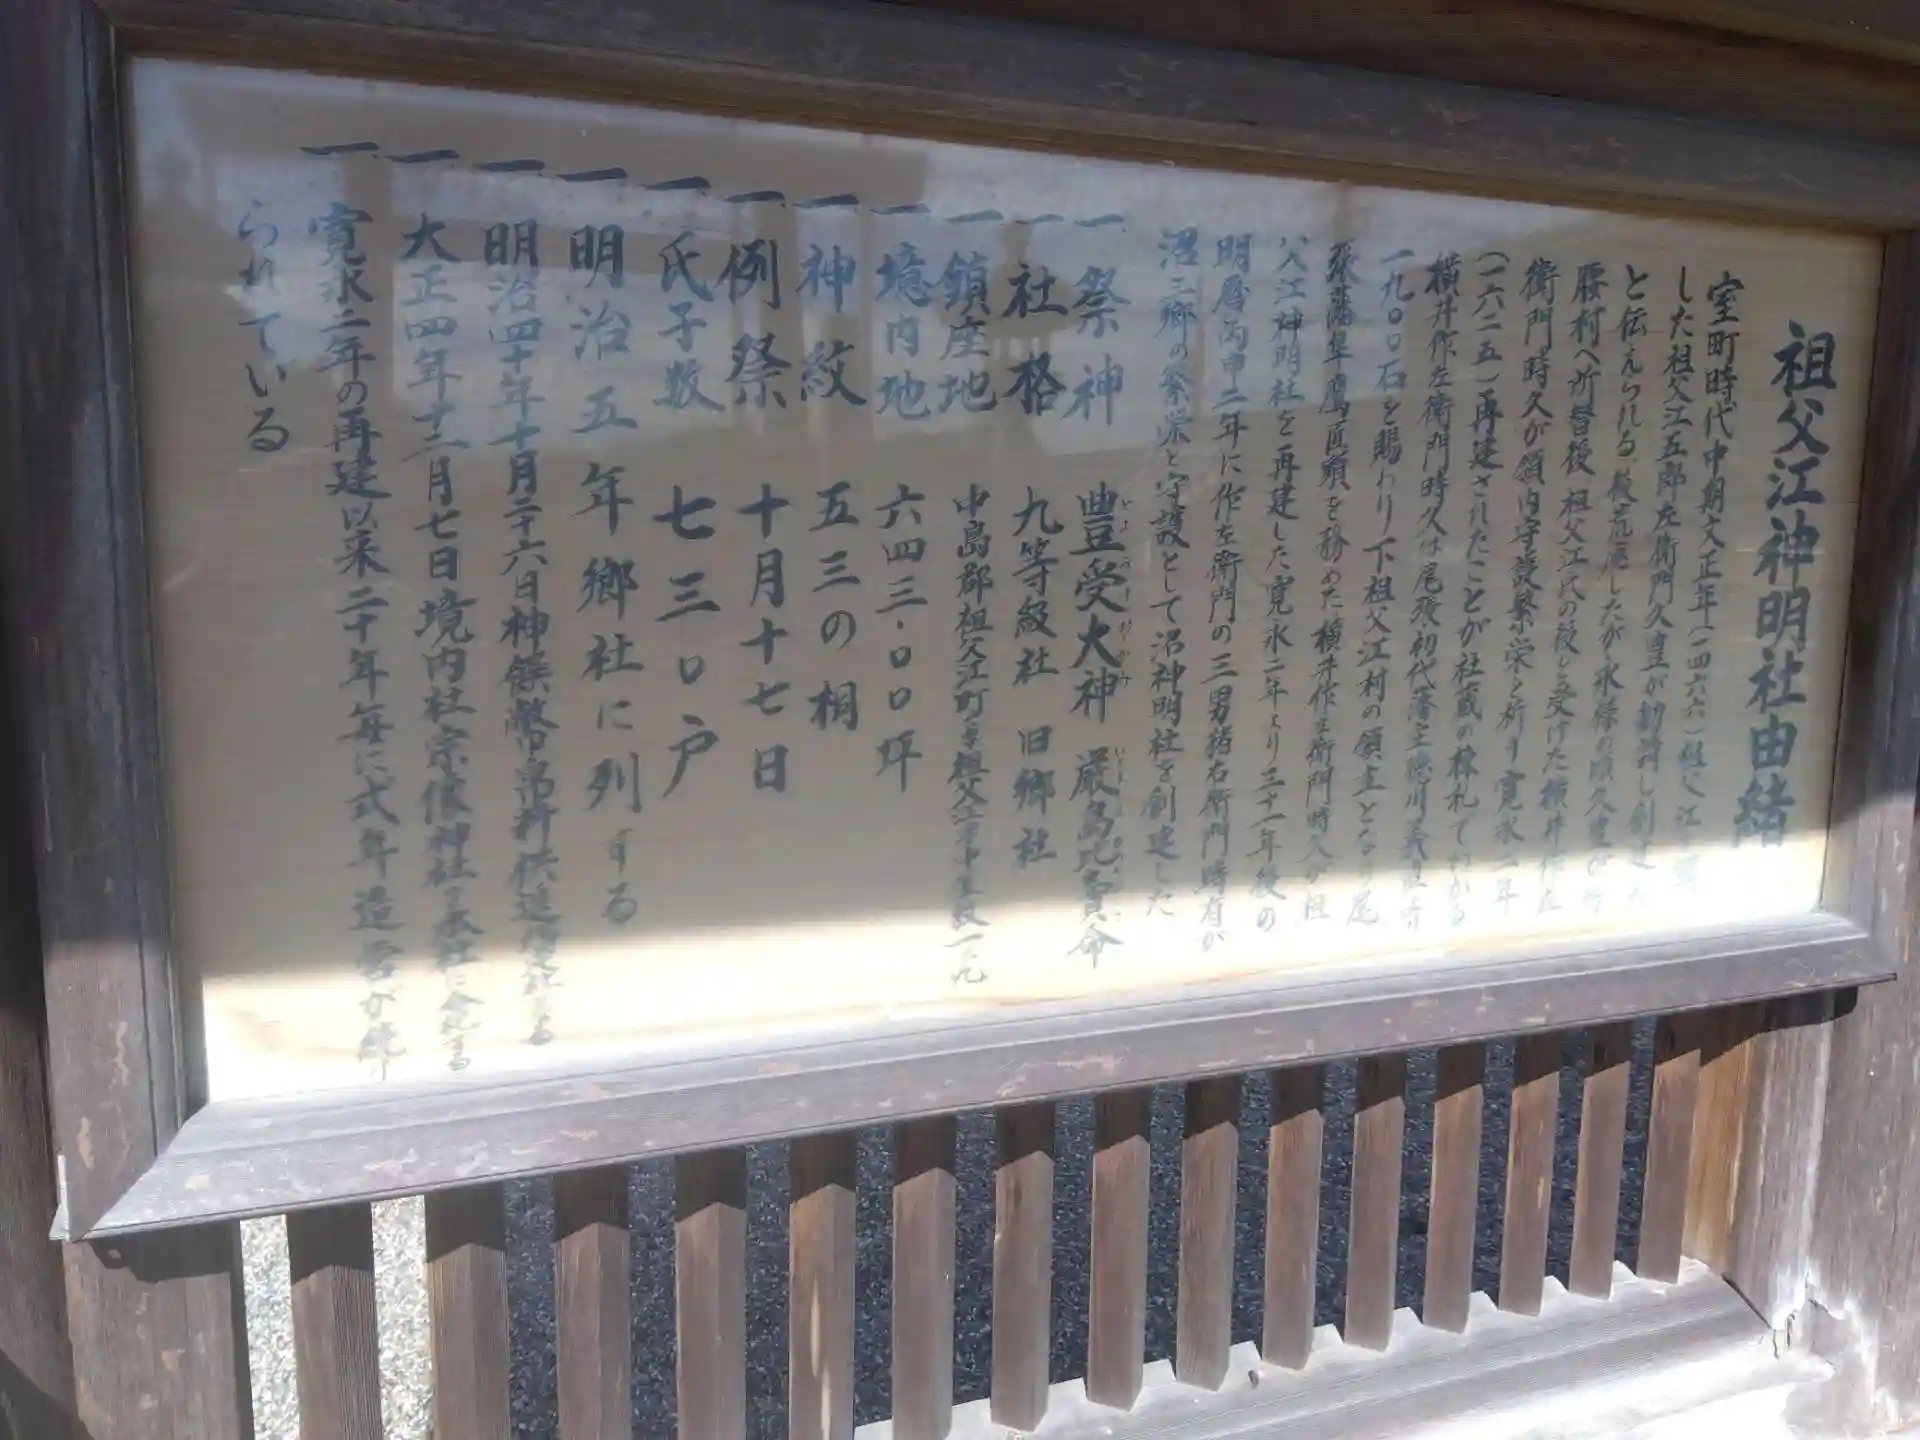 祖父江神明社由緒
室町時代中期文正年(一四六六)祖父江
した祖父江五郎左衛門久豊が勧請し創建した
と伝えられる、後荒廃したが永禄の頃久豊が
腰村へ所替後 祖父江氏の後を受けた横井作左
衛門時久が領内守護繁栄と祈り寛永二年
(一六二五)再建されたことが社蔵の棟札でわかる
横井作左衛門時久は尾張初代藩主徳川義直より
一九〇〇石を賜わり下祖父江村の領主となり尾
張藩隼鷹匠頭を務めた横井作左衛門時久が祖
父江神明社を再建した寛永二年より三十一年後の
明暦丙申二年に作左衛門の三男猪右衛門時有が
沼三郷の繁栄と守護として沼神明社を創建した
一 祭神 豊受大神 厳島比賣命
一 社格 九等級社 旧郷社
一 鎮座地 中島郡祖父江町字祖父江字中屋敷一九
一 境内地 六四三・〇〇坪
一 神紋 五三の桐
一 例祭 十月十七日
一 氏子数 七三〇戸
一 明治五年郷社に列する
一 明治四十年十月二十六日神饌幣帛料供進
一 大正四年十二月七日境内社宗像神社を本社に合祀する
一 寛永二年の再建以来二十年毎に式年造営が続け
られている